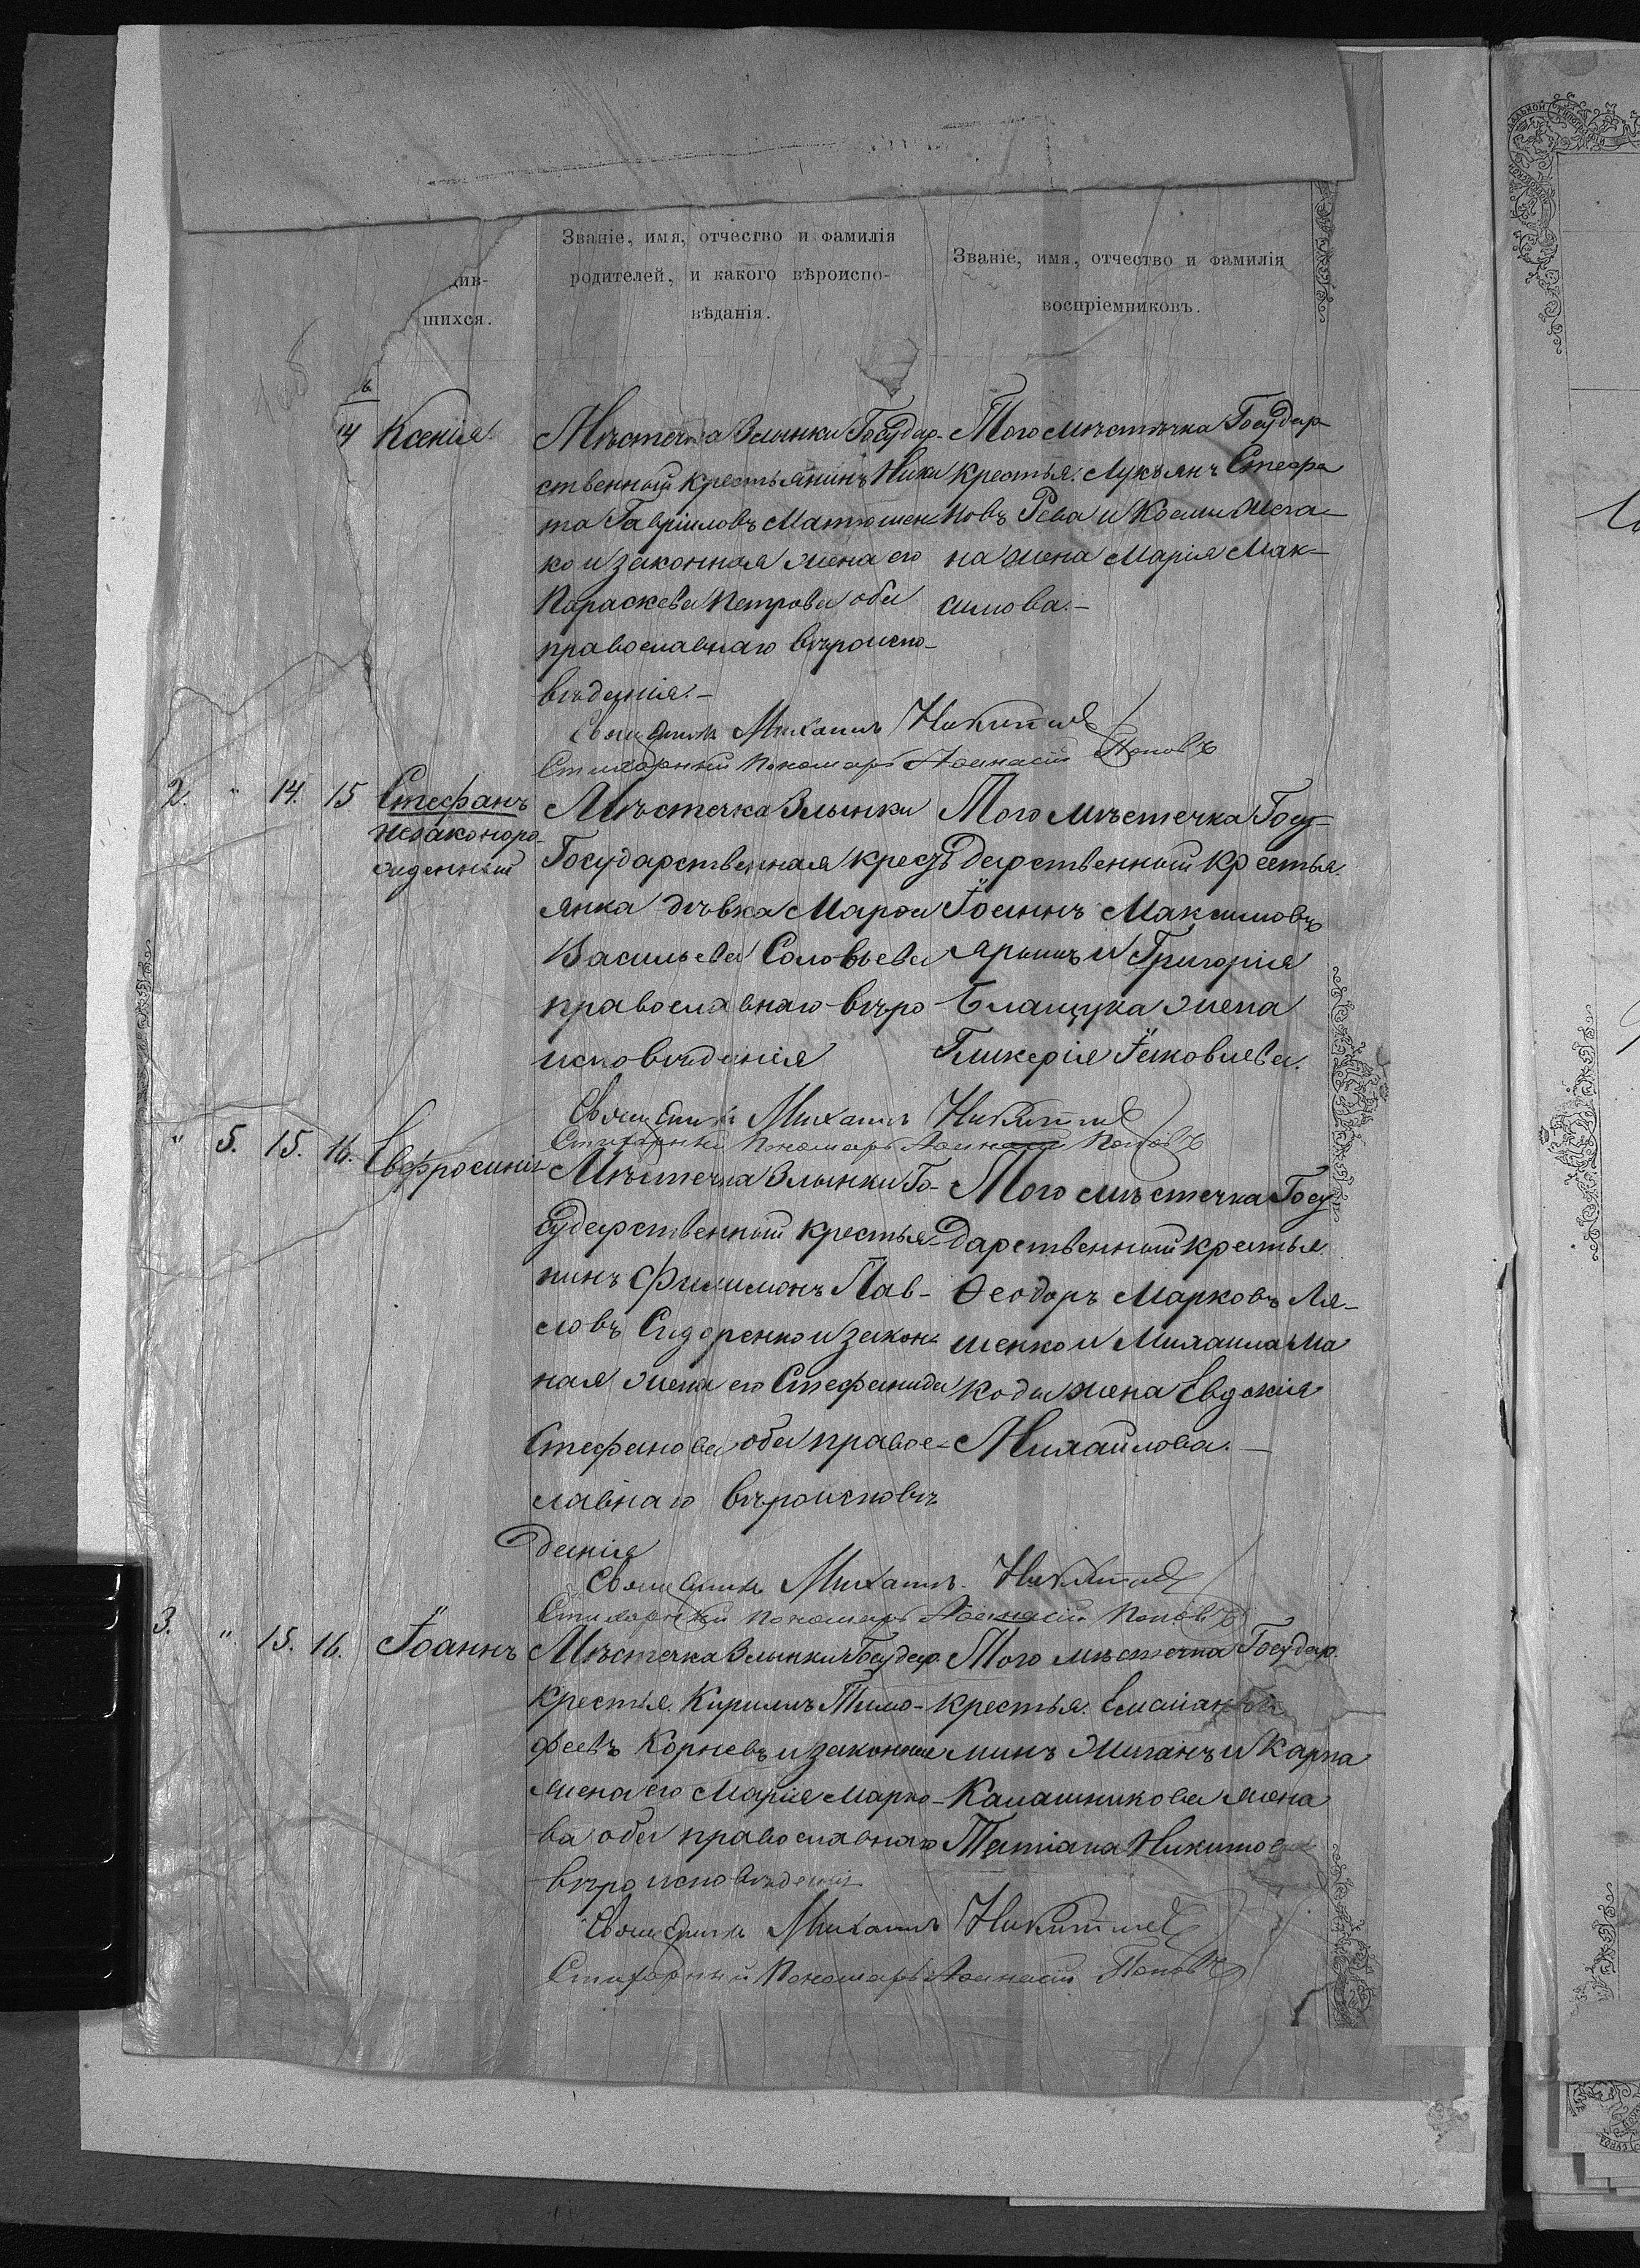 Званіе, имя, отчество и фамилія
родителей, и какого вѣроиспо-
вѣданія.
Званіе, имя, отчество и фамилія
воспріемниковъ.
див-
шихся.
14 Ксенія
Мѣстечка Злынки Государ-
ственный крестьянинъ Ники
та Гавріиловъ Матюшен-
ко и законная жена его
Параскева Петрова оба
православнаго вѣроиспо-
вѣданія.-
Того мѣстечка Государ-
крестья. Лукьянъ Стефа
новъ Рева и Косми
на жена Марія Мак-
симова.-
Священникъ Михаилъ Никитинъ
Стихарный Пономарь Аѳанасій Поповъ
2. " 14. 15 Стефанъ
незаконоро-
жденный
Мѣстечка Злынки
Государственная крестъ
янка дѣвка Марѳа
Васильева Соловьева
православнаго вѣро
исповѣданія
Того мѣстечка Госу-
дарственный крестья.
Іоаннъ Максимовъ
и Григорія
жена
Гликерія Іяковлева.
Священникъ Михаилъ Никитинъ
Стихарный Пономарь Аѳанасій Поповъ
" 5. 15. 16. Евфросинія
Мѣстечка Злынки Го-
сударственный крестья-
нинъ Филимонъ Пав-
ловъ Сидоренко и закон-
ная жена его Стефанида
Стефанова оба правос-
лавнаго вѣроисповѣ
данія
Того мѣстечка Госу
дарственный крестья
Ѳеодоръ Марковъ Ля-
шенко и Михаила Ма
коды жена Евдокія
Михайлова.-
Священникъ Михаилъ Никитинъ
Стихарный Пономарь Аѳанасій Поповъ
3. " 15. 16. Іоаннъ
Мѣстечка Злынки Государ.
крестья. Кириллъ Тимо-
феевъ Корневъ и законная
жена его Марія Марко-
ва оба православнаго
вѣроисповѣданія
Того мѣстечка Государ.
крестья.
минъ и Карпа
Калашникова жена
Татіана Никитова
Священникъ Михаилъ Никитинъ
Стихарный Пономарь Аѳанасій Поповъ